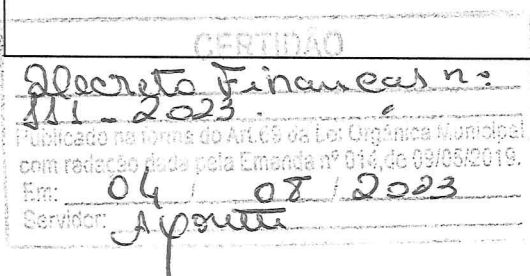 CERTIDÃO
Decreto Finanças nº
111 - 2023.
Publicado na forma do Art. 69 da Lei Orgânica Municipal
com redação dada pela Emenda nº 014, de 09/05/2019.
Em: 04 / 08 / 2023
Servidor: